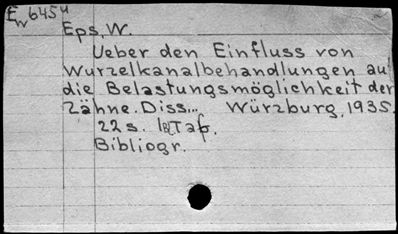 Ew 645u
Eps, W.
Ueber den Einfluss von
Wurzelkanalbehandlungen au
die Belastungsmöglichkeit der
Zähne. Diss... Würzburg, 1935.
22 s. Taf.
Bibliogr.